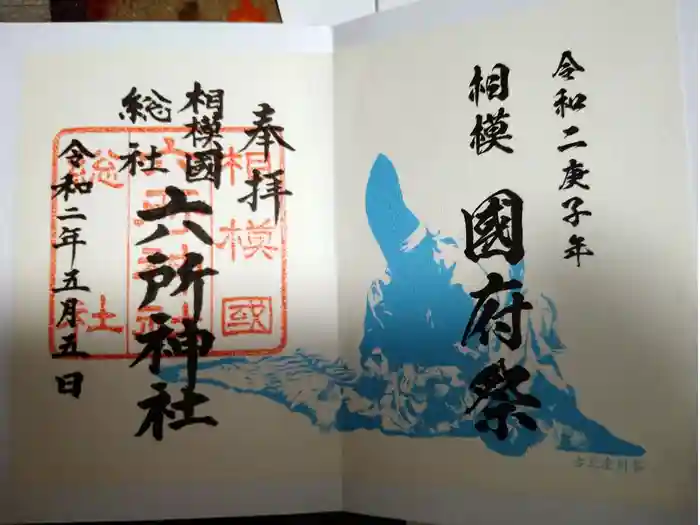 令和二庚子年
相模
國府祭
奉拝
相模國
総社
六所神社
令和二年五月五日
相模國
六所神社
総社